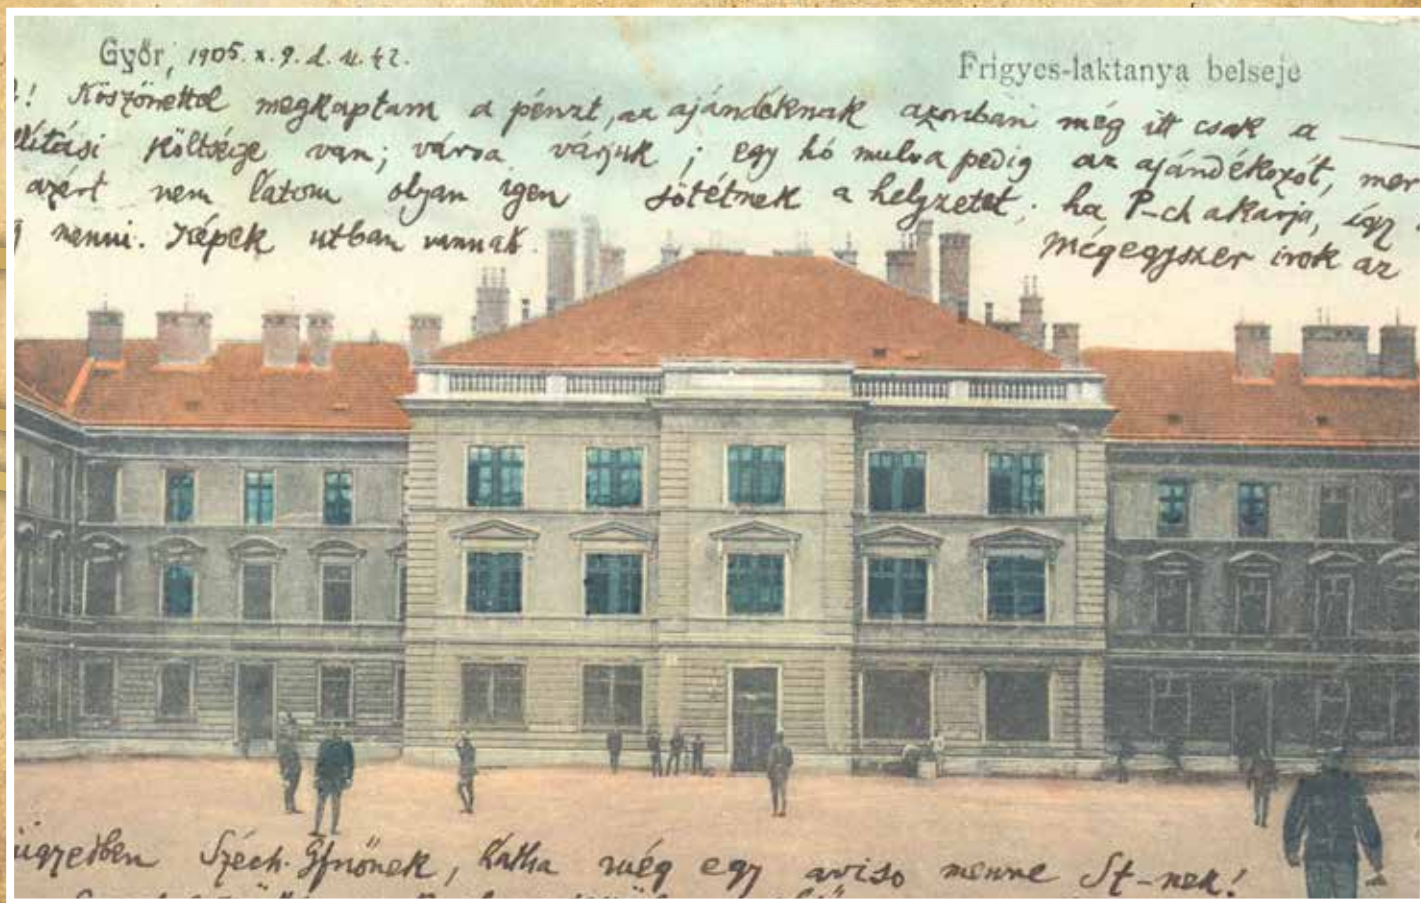 Győr, 1905. X. 9. d. u.
Frigyes-laktanya belseje
! Köszönettel megkaptam a pénzt, az ajándéknak azonban még itt csak a
llítási költsége van; várva várjuk; egy hó mulva pedig az ajándékozót, mer
azért nem látom olyan igen sötétnek a helyzetet; ha P-ch akarja, így
menni. Képek utban vannak.
Mégegyszer irok az
ügyedben Széch. Gfnőnek, hátha még egy aviso menne St-nek!